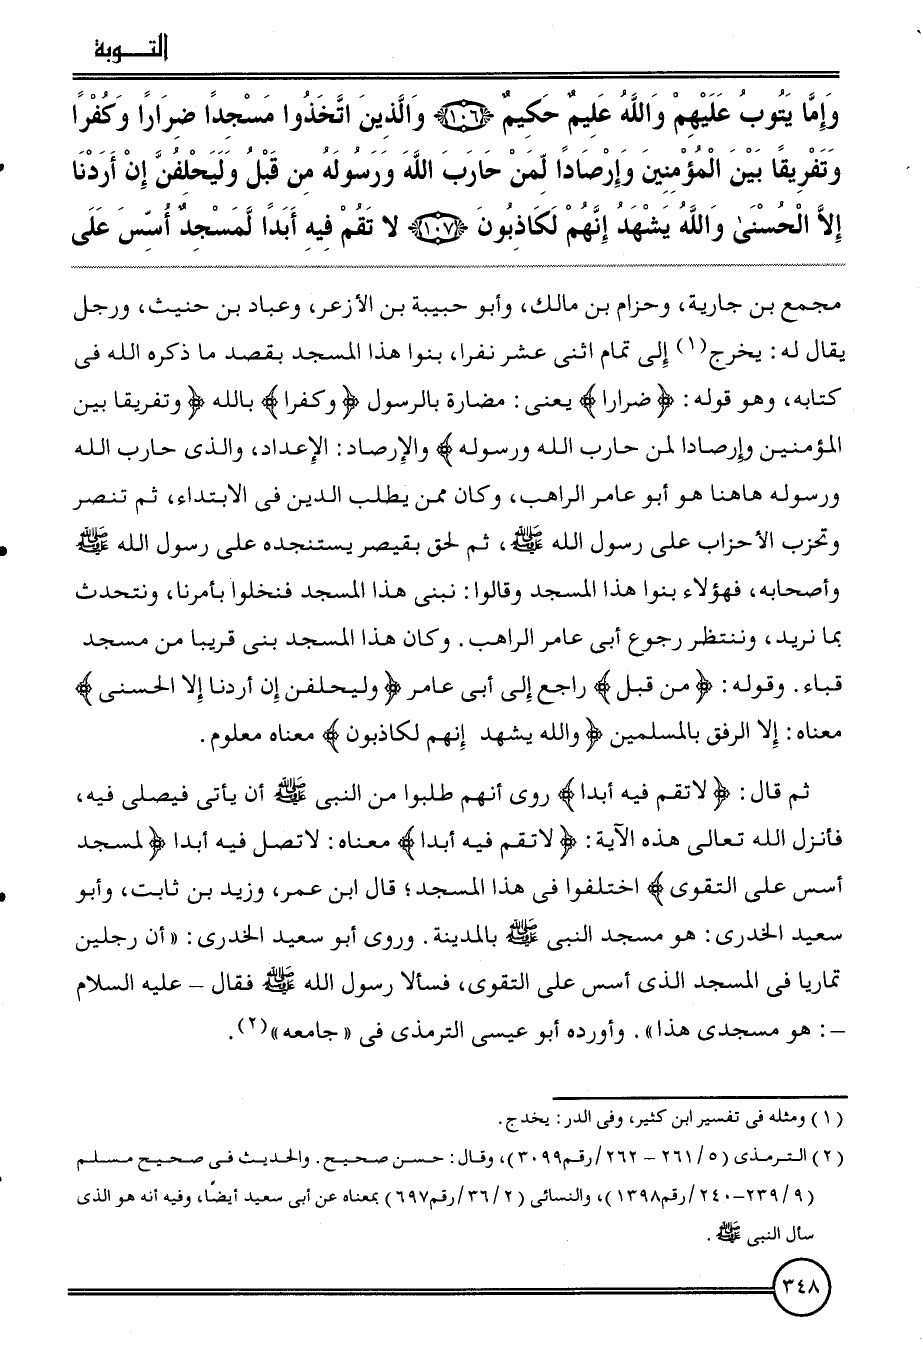 التـــوبة
وَإِمَّا يَتُوبُ عَلَيْهِمْ وَاللَّهُ عَلِيمٌ حَكِيمٌ ﴿١٠٦﴾ وَالَّذِينَ اتَّخَذُوا مَسْجِدًا ضِرَارًا وَكُفْرًا
وَتَفْرِيقًا بَيْنَ الْمُؤْمِنِينَ وَإِرْصَادًا لِّمَنْ حَارَبَ اللَّهَ وَرَسُولَهُ مِن قَبْلُ وَلَيَحْلِفُنَّ إِنْ أَرَدْنَا
إِلاَّ الْحُسْنَىٰ وَاللَّهُ يَشْهَدُ إِنَّهُمْ لَكَاذِبُونَ ﴿١٠٧﴾ لا تَقُمْ فِيهِ أَبَدًا لَّمَسْجِدٌ أُسِّسَ عَلَى
مجمع بن جارية، وحزام بن مالك، وأبو حبيبة بن الأزعر، وعباد بن حنيث، ورجل
يقال له: يخرج(١) إلى تمام اثنى عشر نفرا، بنوا هذا المسجد بقصد ما ذكره الله فى
كتابه، وهو قوله: ﴿ضرارا﴾ يعنى: مضارة بالرسول ﴿وكفرا﴾ بالله ﴿وتفريقا بين
المؤمنين وإرصادا لمن حارب الله ورسوله﴾ والإرصاد: الإعداد، والذى حارب الله
ورسوله هاهنا هو أبو عامر الراهب، وكان ممن يطلب الدين فى الابتداء، ثم تنصر
وتحزب الأحزاب على رسول الله ﷺ، ثم لحق بقيصر يستنجده على رسول الله ﷺ
وأصحابه، فهؤلاء بنوا هذا المسجد وقالوا: نبنى هذا المسجد فنخلوا بأمرنا، ونتحدث
بما نريد، وننتظر رجوع أبى عامر الراهب. وكان هذا المسجد بنى قريبا من مسجد
قباء. وقوله: ﴿من قبل﴾ راجع إلى أبى عامر ﴿وليحلفن إن أردنا إلا الحسنى﴾
معناه: إلا الرفق بالمسلمين ﴿والله يشهد إنهم لكاذبون﴾ معناه معلوم.
ثم قال: ﴿لاتقم فيه أبدا﴾ روى أنهم طلبوا من النبى ﷺ أن يأتى فيصلى فيه،
فأنزل الله تعالى هذه الآية: ﴿لاتقم فيه أبدا﴾ معناه: لاتصل فيه أبدا ﴿لمسجد
أسس على التقوى﴾ اختلفوا فى هذا المسجد؛ قال ابن عمر، وزيد بن ثابت، وأبو
سعيد الخدرى: هو مسجد النبى ﷺ بالمدينة. وروى أبو سعيد الخدرى: «أن رجلين
تماريا فى المسجد الذى أسس على التقوى، فسألا رسول الله ﷺ فقال – عليه السلام
–: هو مسجدى هذا». وأورده أبو عيسى الترمذى فى «جامعه»(٢).
(١) ومثله فى تفسير ابن كثير، وفى الدر: يخدج.
(٢) الترمذى (٥/ ٢٦١ – ٢٦٢ /رقم٣٠٩٩)، وقال: حسن صحيح. والحديث فى صحيح مسلم
(٩/ ٢٣٩–٢٤٠ /رقم١٣٩٨)، والنسائى (٢/ ٣٦ /رقم٦٩٧) بمعناه عن أبى سعيد أيضًا، وفيه أنه هو الذى
سأل النبى ﷺ.
٣٤٨